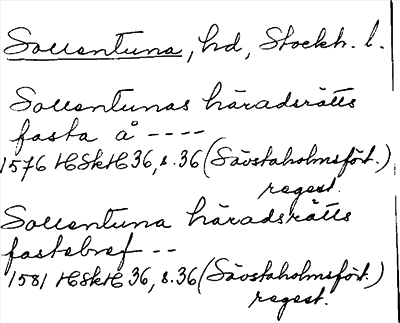 Sollentuna, hd, Stockh. l.
Sollentunas häradsrätts
fasta å ----
1576 HSkH 36, s. 36 (Sävstaholmsfört.)
regest.
Sollentuna häradsrätts
fastebref --
1581 HSkH 36, s. 36 (Sävstaholmsfört.)
regest.